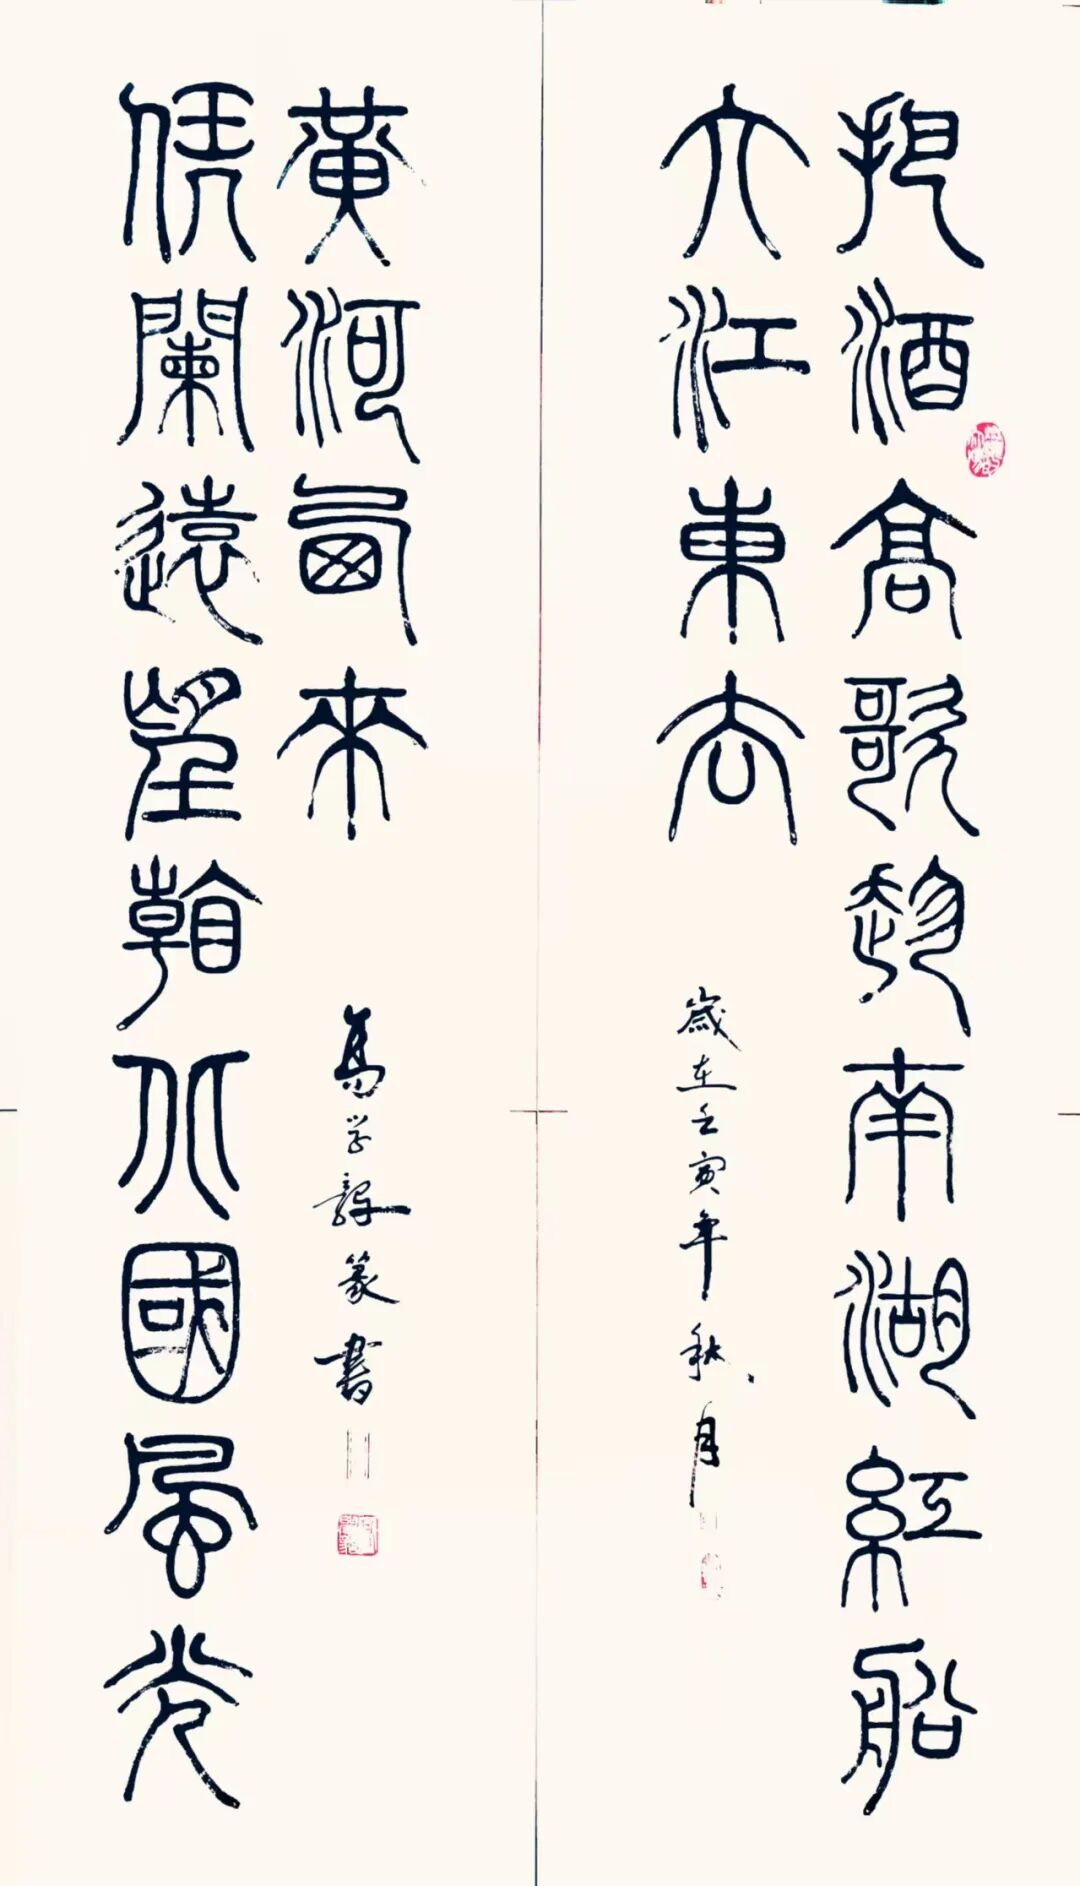 把酒高歌趁南湖紅船
大江東去
歲在壬寅年秋月
凭闌遠望看北國風光
黃河西來
学篆書